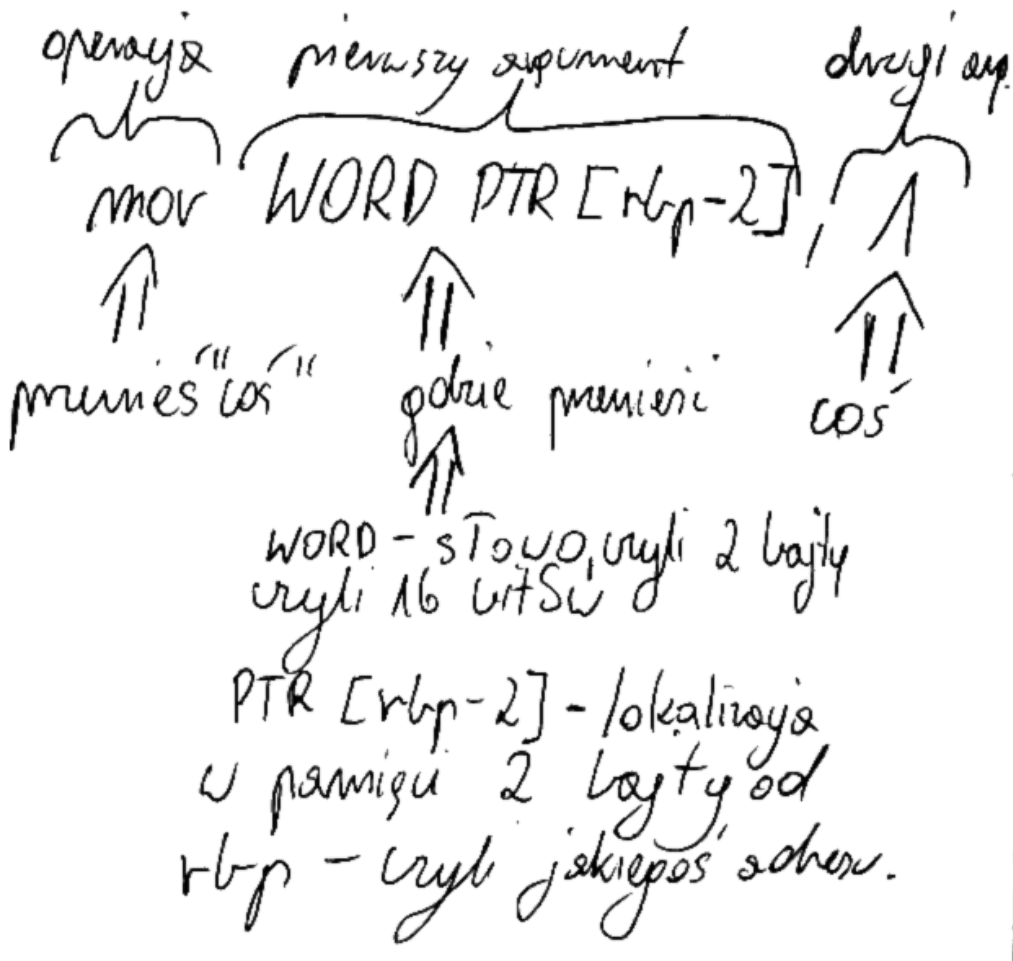 operacja pierwszy argument drugi arg.
mov WORD PTR [rbp-2], 1
przenieś "coś" gdzie przenieść coś
WORD - słowo, czyli 2 bajty
czyli 16 bitów
PTR [rbp-2] - lokalizacja
w pamięci 2 bajty od
rbp - czyli jakiegoś adresu.